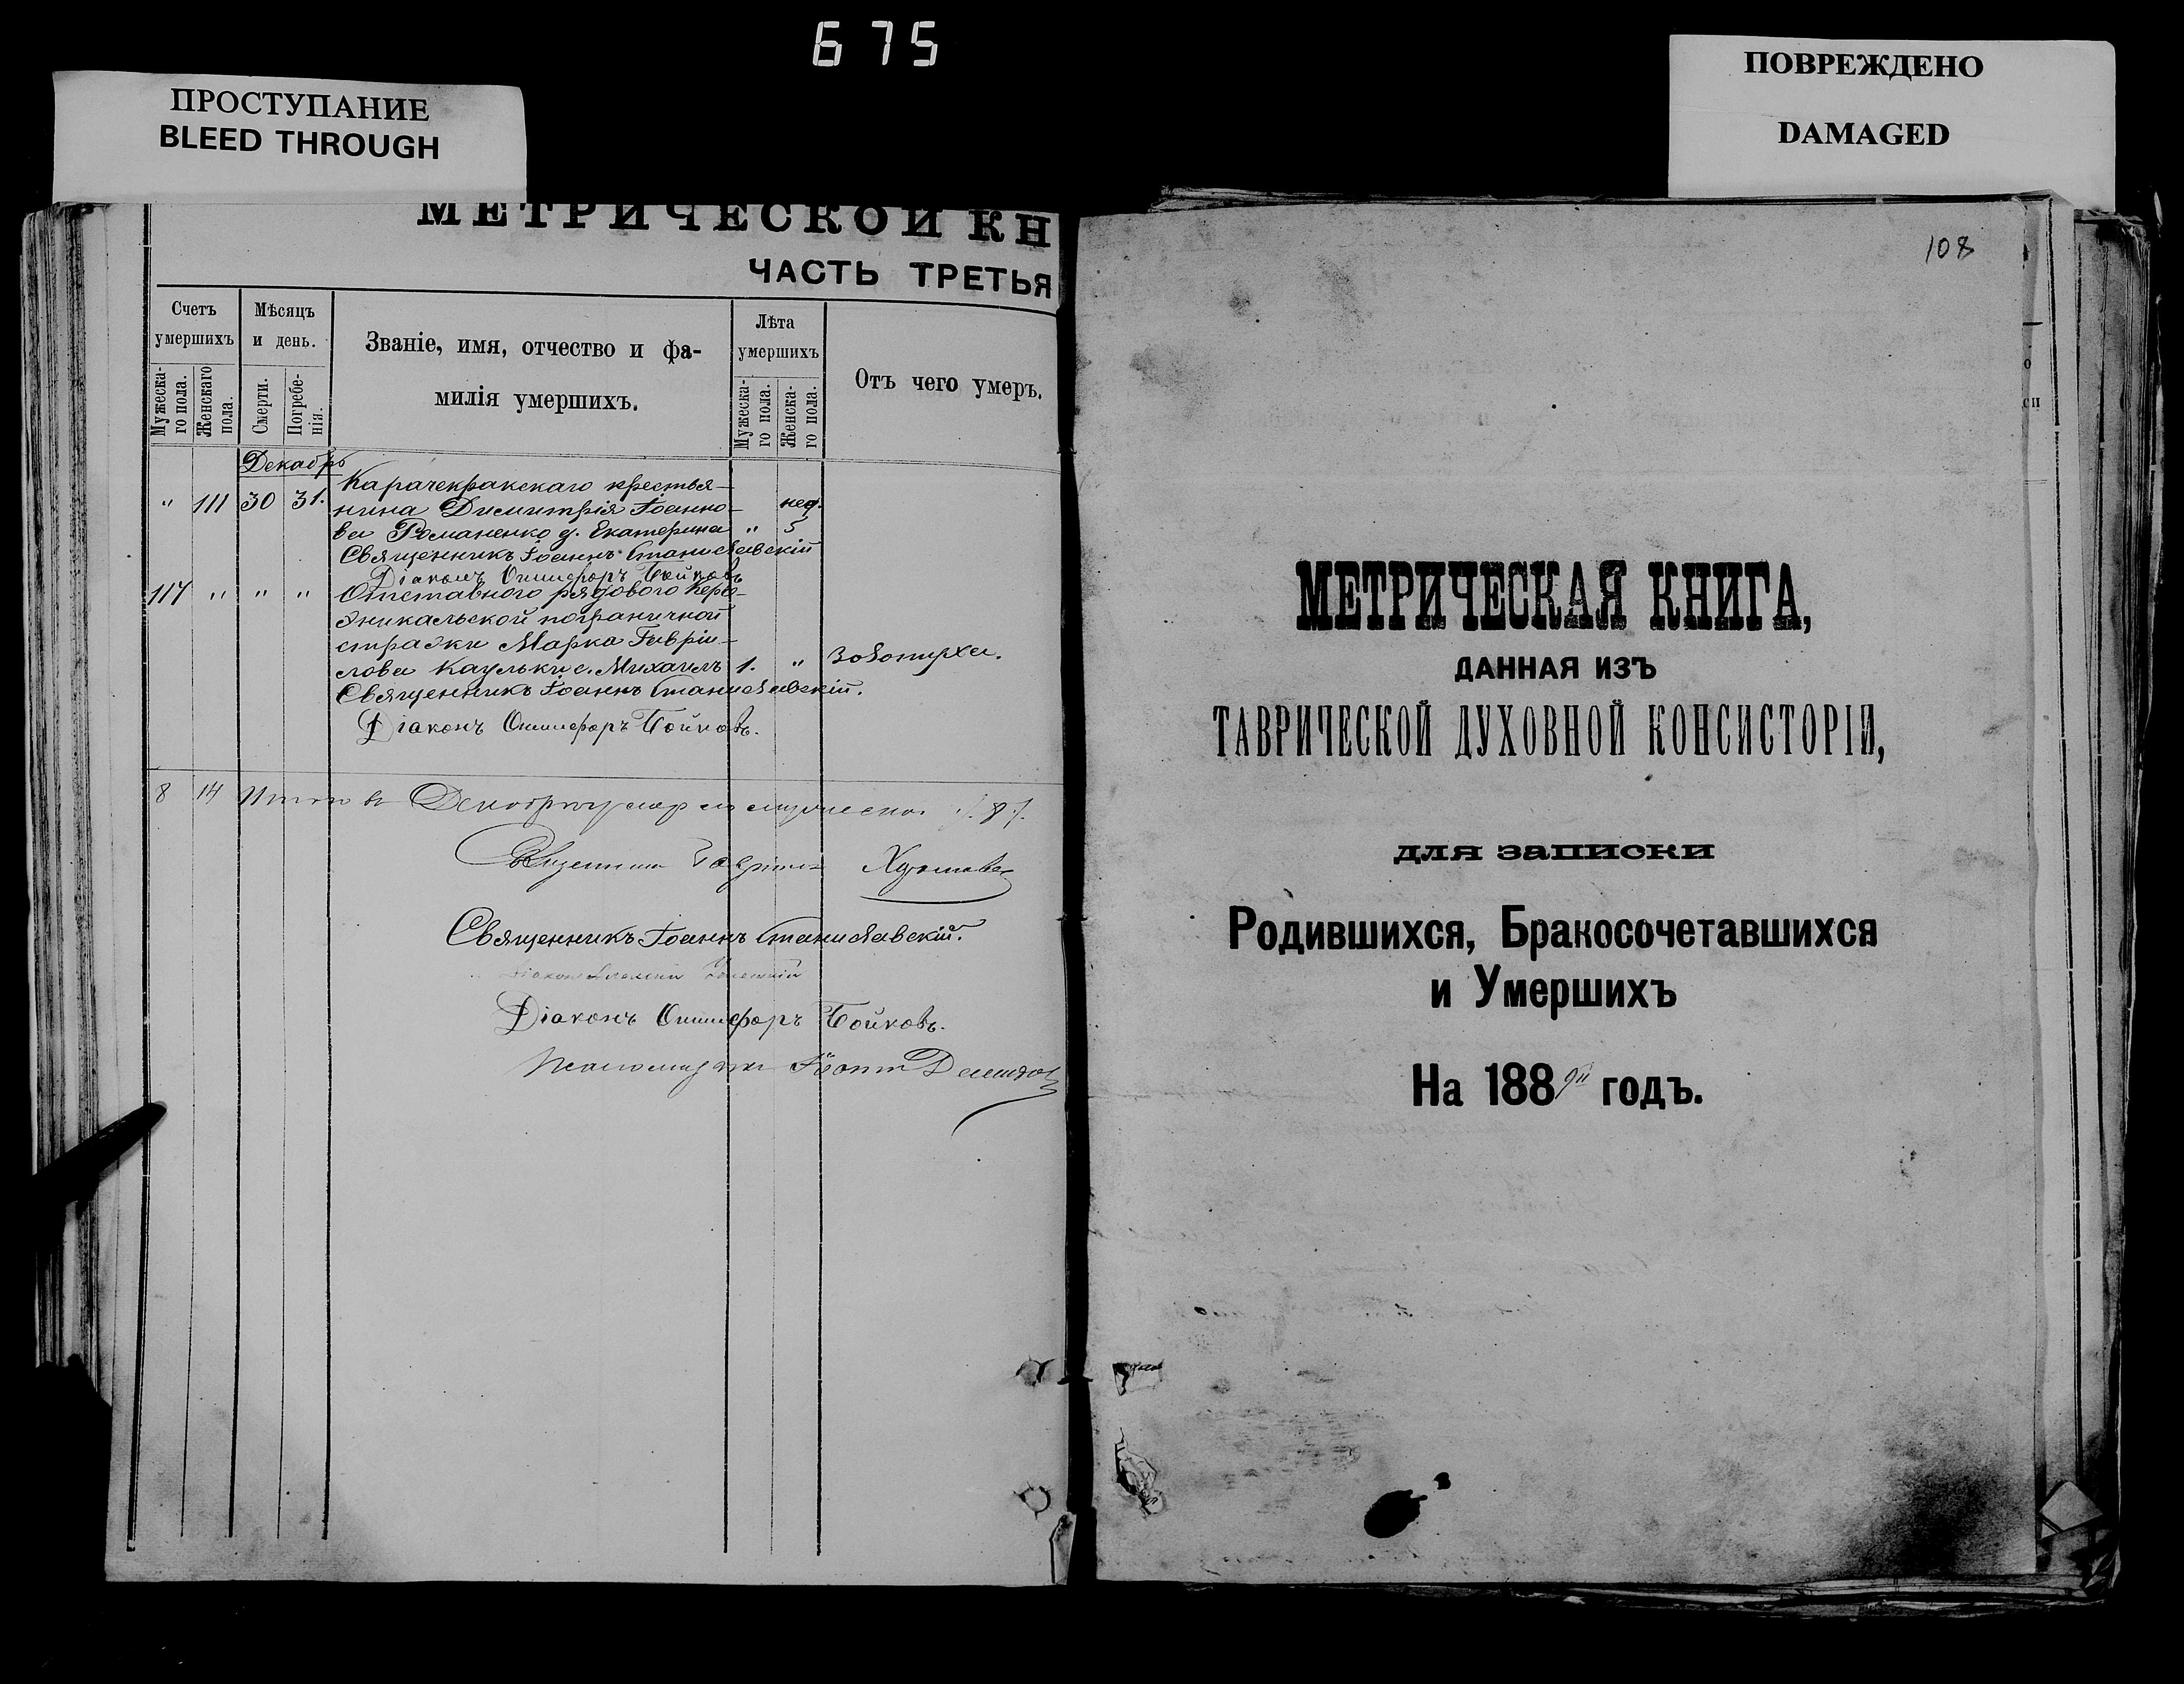 675
ПРОСТУПАНИЕ
BLEED THROUGH
ПОВРЕЖДЕНО
DAMAGED
МЕТРИЧЕСКОЙ КН
ЧАСТЬ ТРЕТЬЯ
Счетъ умершихъ
Мужеска-
го пола.
Женскаго
пола.
Мѣсяцъ и день.
Смерти.
Погребе-
нія.
Званіе, имя, отчество и фа-
милія умершихъ.
Лѣта умершихъ
Мужеска-
го пола.
Женска-
го пола.
Отъ чего умеръ.
Декабрь
Карачекракскаго крестья-
" 111 30 31. нина Димитрія Іоанно- нед.
ва Романенко д. Екатерина " 5
Священникъ Іоаннъ Станиславскій
Діаконъ Онисифоръ Бойковъ
117 " " " Отставного рядового Керч-
Эникальской пограничной
стражи Марка Гаврии-
лова Каульки с. Михаилъ 1. " Золотуха.
Священникъ Іоаннъ Станиславскій.
Діаконъ Онисифоръ Бойковъ.
8 14 Итого въ 8
Священникъ
Священникъ Іоаннъ Станиславскій.
Діаконъ
Діаконъ Онисифоръ Бойковъ.
Псаломщикъ
108
МЕТРИЧЕСКАЯ КНИГА,
ДАННАЯ ИЗЪ
ТАВРИЧЕСКОЙ ДУХОВНОЙ КОНСИСТОРІИ,
для записки
Родившихся, Бракосочетавшихся
и Умершихъ
На 1889й годъ.